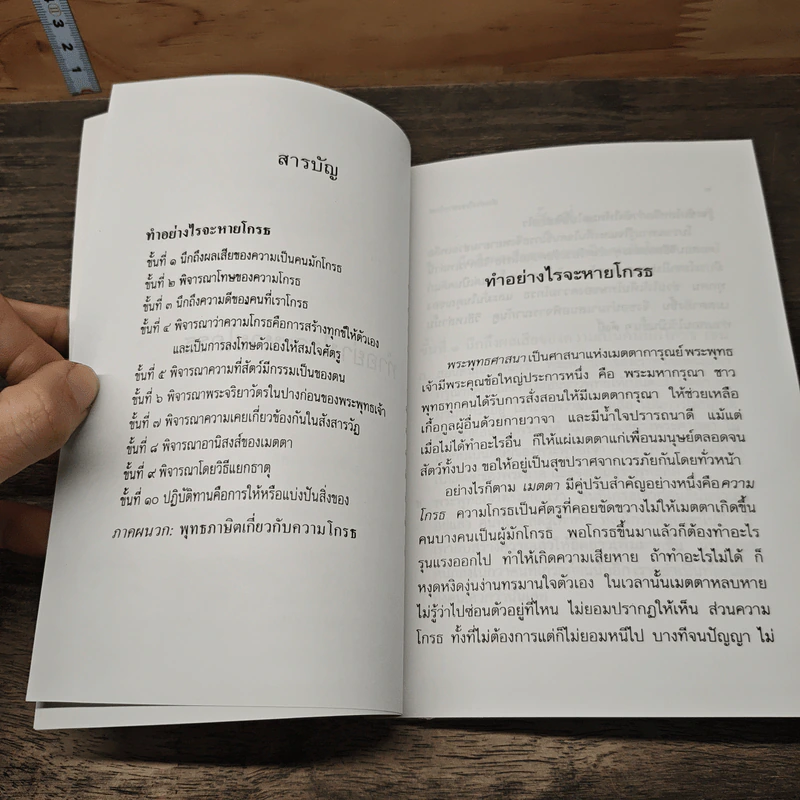 3
2
1
สารบัญ
ทำอย่างไรจะหายโกรธ
ขั้นที่ ๑ นึกถึงผลเสียของความเป็นคนมักโกรธ
ขั้นที่ ๒ พิจารณาโทษของความโกรธ
ขั้นที่ ๓ นึกถึงความดีของคนที่เราโกรธ
ขั้นที่ ๔ พิจารณาว่าความโกรธคือการสร้างทุกข์ให้ตัวเอง
และเป็นการลงโทษตัวเองให้สมใจศัตรู
ขั้นที่ ๕ พิจารณาความที่สัตว์มีกรรมเป็นของตน
ขั้นที่ ๖ พิจารณาพระจริยาวัตรในปางก่อนของพระพุทธเจ้า
ขั้นที่ ๗ พิจารณาความเคยเกี่ยวข้องกันในสังสารวัฏ
ขั้นที่ ๘ พิจารณาอานิสงส์ของเมตตา
ขั้นที่ ๙ พิจารณาโดยวิธีแยกธาตุ
ขั้นที่ ๑๐ ปฏิบัติทานคือการให้หรือแบ่งปันสิ่งของ
ภาคผนวก: พุทธภาษิตเกี่ยวกับความโกรธ
ทำอย่างไรจะหายโกรธ
พระพุทธศาสนา เป็นศาสนาแห่งเมตตาการุณย์ พระพุทธ
เจ้ามีพระคุณข้อใหญ่ประการหนึ่ง คือ พระมหากรุณา ชาว
พุทธทุกคนได้รับการสั่งสอนให้มีเมตตากรุณา ให้ช่วยเหลือ
เกื้อกูลผู้อื่นด้วยกายวาจา และมีน้ำใจปรารถนาดี แม้แต่
เมื่อไม่ได้ทำอะไรอื่น ก็ให้แผ่เมตตาแก่เพื่อนมนุษย์ตลอดจน
สัตว์ทั้งปวง ขอให้อยู่เป็นสุขปราศจากเวรภัยกันโดยทั่วหน้า
อย่างไรก็ตาม เมตตา มีคู่ปรับสำคัญอย่างหนึ่งคือ ความ
โกรธ ความโกรธเป็นศัตรูที่คอยขัดขวางไม่ให้เมตตาเกิดขึ้น
คนบางคนเป็นผู้มักโกรธ พอโกรธขึ้นมาแล้วก็ต้องทำอะไร
รุนแรงออกไป ทำให้เกิดความเสียหาย ถ้าทำอะไรไม่ได้ ก็
หงุดหงิดงุ่นง่านทรมานใจตัวเอง ในเวลานั้นเมตตาหลบหาย
ไม่รู้ว่าไปซ่อนตัวอยู่ที่ไหน ไม่ยอมปรากฏให้เห็น ส่วนความ
โกรธ ทั้งที่ไม่ต้องการแต่ก็ไม่ยอมหนีไป บางทีจนปัญญา ไม่